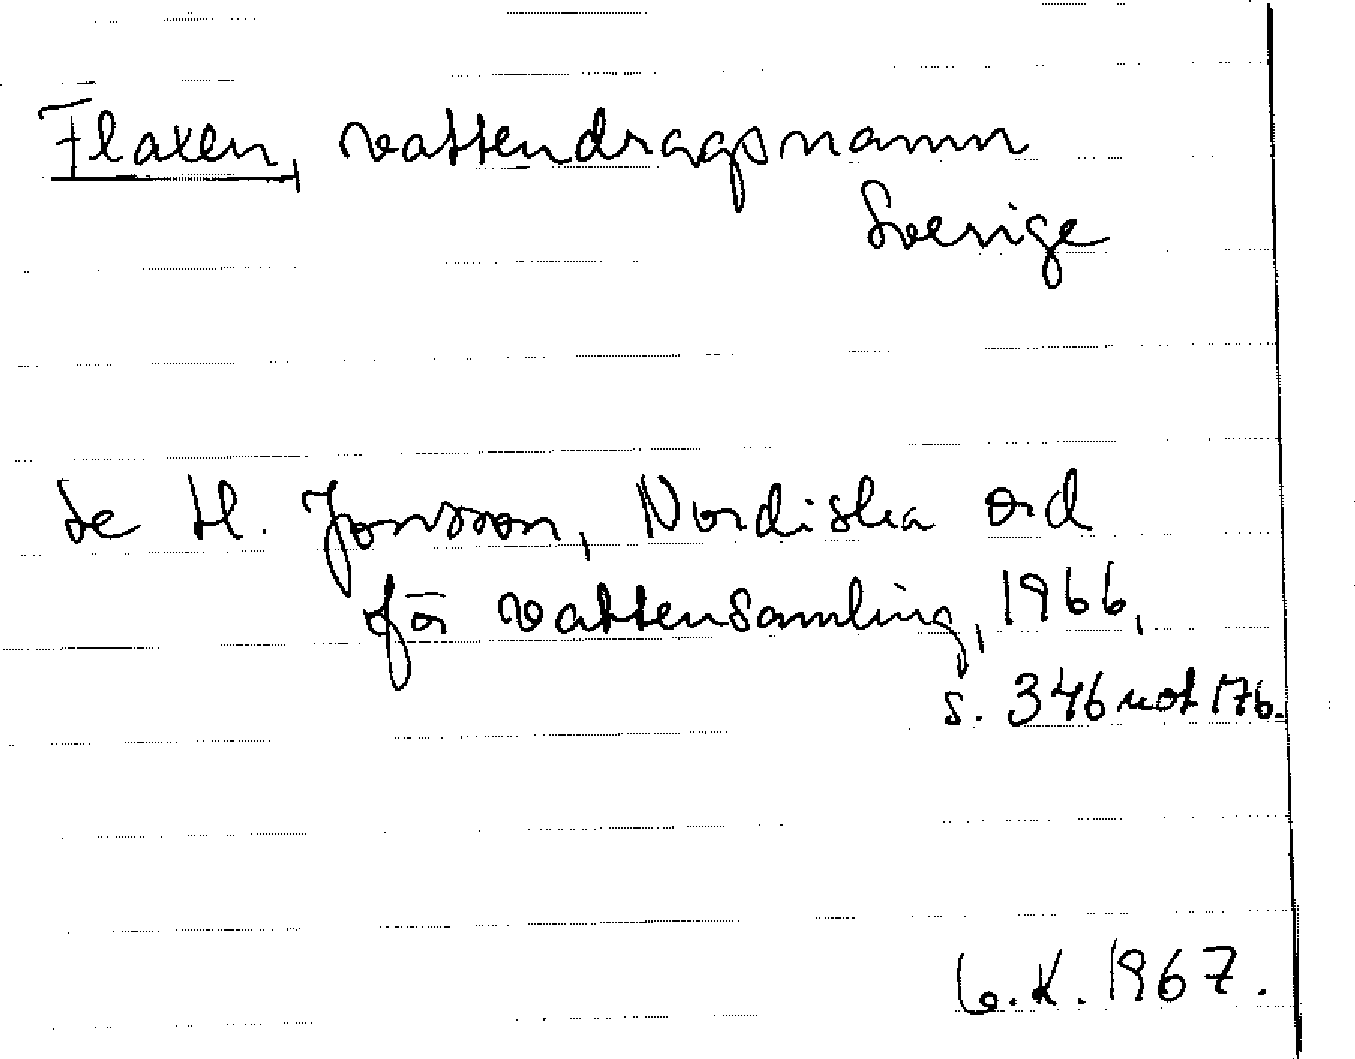 Flaxen, vattendragsnamn
Sverige
Se H. Jonsson, Nordiska ord
för vattensamling, 1966,
s. 346 not 176.
G.K. 1967.